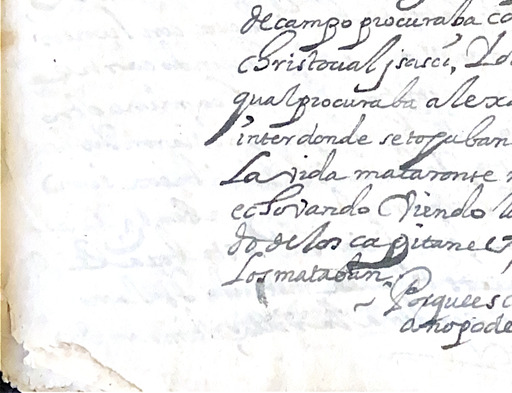 de campo procuraba co
christoual jsasci, Lo
qual procuraba alexa
inter donde se topaban
La vida mataronse
echovando Viendo l
do de los capitanes
Los mataban
Porque es c
o no pode